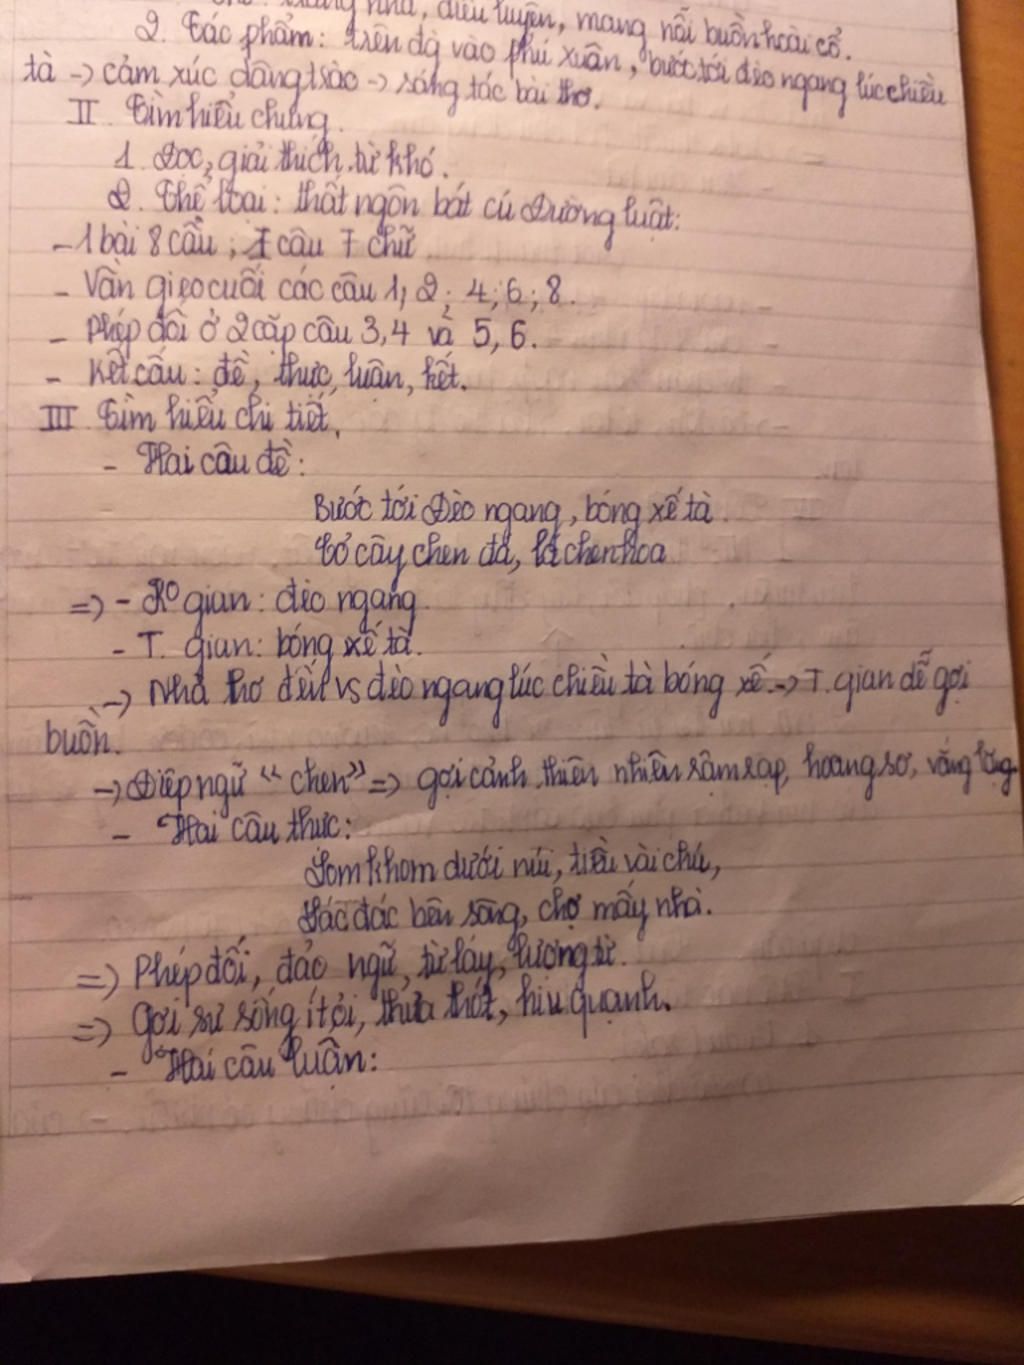 trang nhã, điêu luyện, mang nỗi buồn hoài cổ.
2. Tác phẩm: trên đg vào phú xuân, bước tới đèo ngang lúc chiều
tà -> cảm xúc dâng trào -> sáng tác bài thơ.
II. Tìm hiểu chung.
1. Đọc, giải thích từ khó.
2. Thể loại: thất ngôn bát cú Đường luật:
- 1 bài 8 câu; 1 câu 7 chữ
- Vần gieo cuối các câu 1, 2; 4; 6; 8.
- Phép đối ở 2 cặp câu 3, 4 và 5, 6.
- Kết cấu: đề, thực, luận, kết.
III. Tìm hiểu chi tiết.
- Hai câu đề:
Bước tới Đèo ngang, bóng xế tà.
Cỏ cây chen đá, lá chen hoa
=> - Ko gian: đèo ngang.
- T. gian: bóng xế tà.
-> Nhà thơ đến vs đèo ngang lúc chiều tà bóng xế. -> T. gian dễ gợi
buồn.
-> Điệp ngữ "chen" => gợi cảnh thiên nhiên rậm rạp, hoang sơ, vắng lặng
- Hai câu thực:
Lom khom dưới núi, tiều vài chú,
Lác đác bên sông, chợ mấy nhà.
=> Phép đối, đảo ngữ, từ láy, lượng từ.
=> Gợi sự sống ít ỏi, thưa thớt, hiu quạnh.
- Hai câu luận: